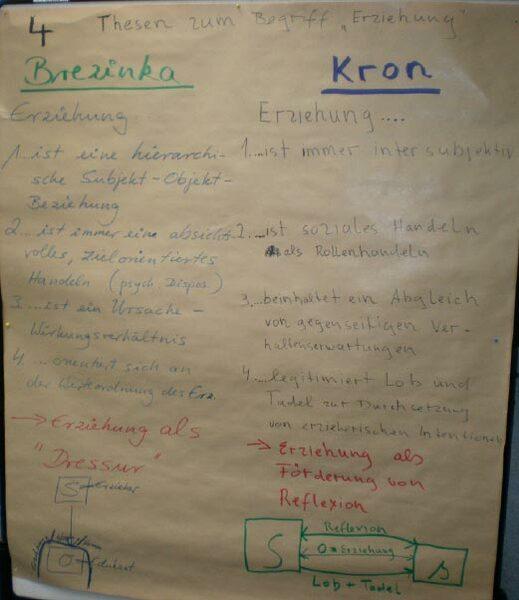 4 Thesen zum Begriff „Erziehung"
Brezinka
Erziehung
1. ...ist eine hierarchi-
sche Subjekt-Objekt-
Beziehung
2. ...ist immer eine absichts-
volles, zielorientiertes
Handeln (psych Dispos.)
3. ...ist ein Ursache-
Wirkungsverhältnis
4. ... orientiert sich an
der Werteordnung des Erz.
→ Erziehung als
"Dressur"
S → Erzieher
O → Edukant
Kron
Erziehung....
1....ist immer intersubjektiv
2....ist soziales Handeln
als Rollenhandeln
3....beinhaltet ein Abgleich
von gegenseitigen Ver-
haltenserwartungen
4....legitimiert Lob und
Tadel zur Durchsetzung
von erzieherischen Intentionen
→ Erziehung als
Förderung von
Reflexion
S
Reflexion
O = Erziehung
Lob + Tadel
s